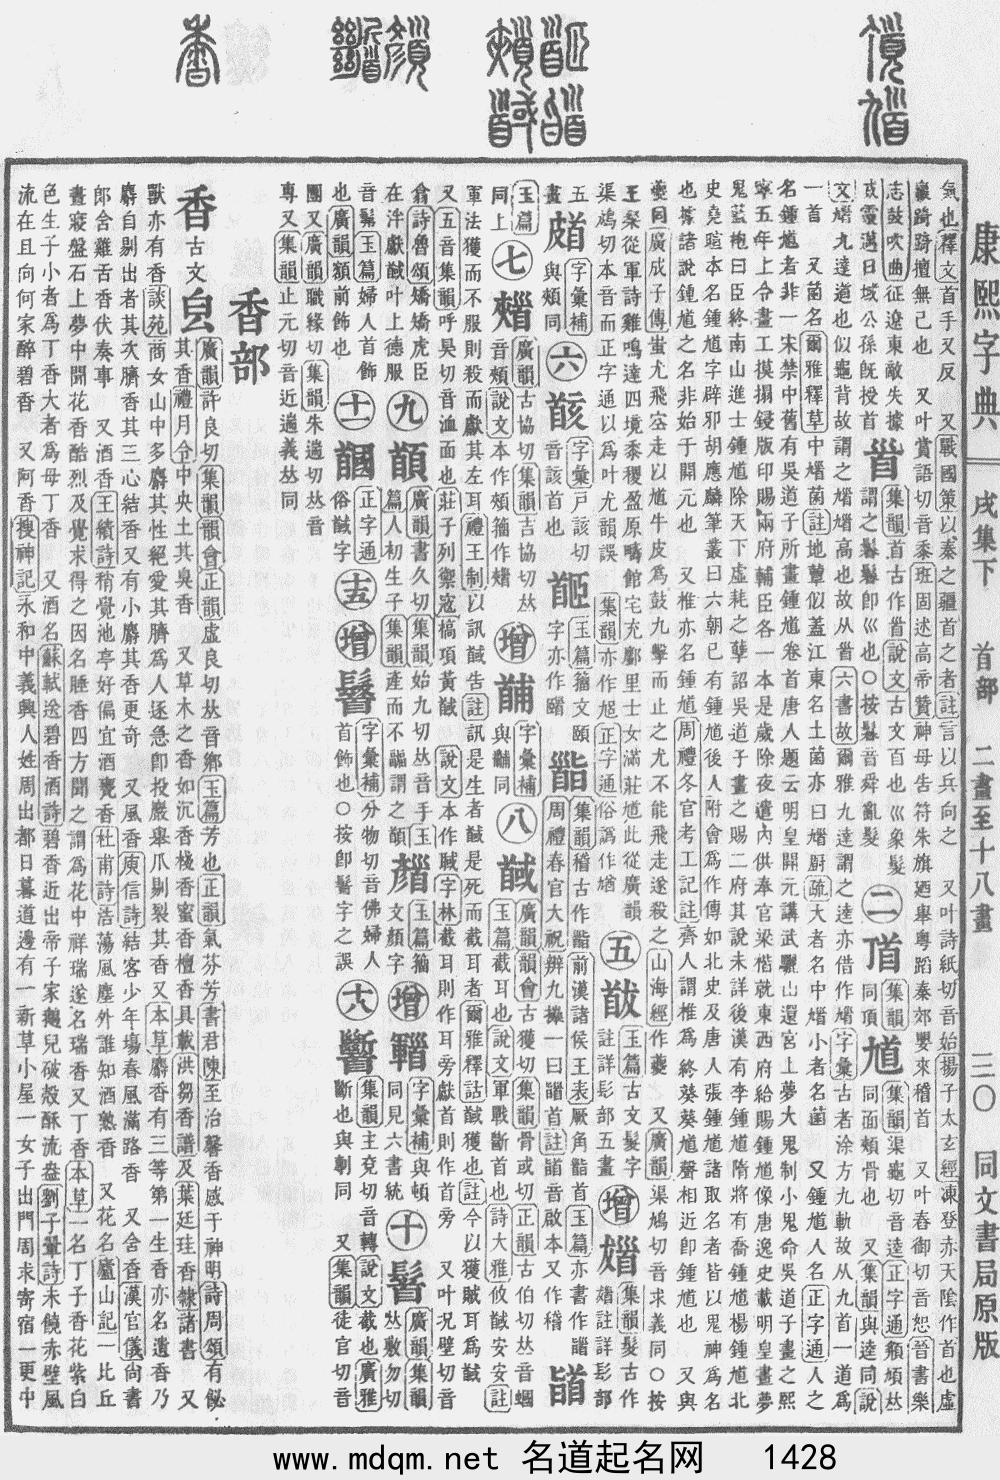 康熙字典 戌集下 首部 二畫至十八畫 三〇 同文書局原版
氣也釋文首手又反 又戰國策以秦之疆首之者註言以兵向之 又叶詩紙切音始揚子太玄經凍登赤天陰作首也虛
羸踦踦擅無己也 又叶賞語切音黍班固述高帝贊神母告符朱旗廼舉粵蹈秦郊嬰來稽首 又叶春御切音恕晉書樂
志鼓吹曲征遼東敵失據
威靈邁日域公孫旣授首
𦣻 集韻首古作𦣻說文古文百也巛象髮
謂之鬊鬊卽巛也○按鬊音舜亂髮
二
集韻
同頂
馗 集韻渠龜切音逵正字通頯頄𠀤
同面頰骨也 又集韻與逵同說
文馗九達道也似龜背故謂之馗馗高也故从𦣻六書故爾雅九達謂之逵亦借作馗字彙古者涂方九軌故从九首一道爲
一首 又菌名爾雅釋草中馗菌註地蕈似蓋江東名土菌亦曰馗厨疏大者名中馗小者名菌 又鍾馗人名正字通人之
名鍾馗者非一宋禁中舊有吳道子所畫鍾馗卷首唐人題云明皇開元講武驪山還宮上夢大鬼制小鬼命吳道子畫之熙
寧五年上令畫工摸搨鋟版印賜兩府輔臣各一本是歲除夜遣內供奉官梁楷就東西府給賜鍾馗像唐逸史載明皇晝夢
鬼藍袍曰臣終南山進士鍾馗除天下虛耗之孽詔吳道子畫之賜二府其說未詳後漢有李鍾馗隋將有喬鍾馗楊鍾馗北
史堯暄本名鍾馗字辟邪胡應麟筆叢曰六朝已有鍾馗後人附會爲作傳如北史及唐人張鍾馗諸取名者皆以鬼神爲名
也據諸說鍾馗之名非始于開元也 又椎亦名鍾馗周禮冬官考工記註齊人謂椎爲終葵葵馗聲相近卽鍾馗也 又與
夔同廣成子傳蚩尤飛空走以馗牛皮爲鼓九擊而止之尤不能飛走遂殺之山海經作夔 又廣韻渠鳩切音求義同○按
王粲從軍詩雞鳴達四境黍稷盈原疇館宅充鄽里士女滿莊馗此從廣韻
渠鳩切本音而正字通以爲叶尤韻誤 集韻亦作尯正字通俗譌作䭳
五
玉篇古文髮字
註詳髟部五畫
增
集韻髮古作
註詳髟部
五
畫
字彙補
與頰同
六
字彙戸該切
音該首也
玉篇籀文頤
字亦作䭇
集韻稽古作䭫前漢諸侯王表厥角䭫首玉篇亦書作𩠐
周禮春官大祝辨九𢷎一曰𩠐首註𩠐音啟本又作稽
玉篇
同上
七
廣韻古協切集韻吉協切𠀤
音頰說文本作頰籀作
增
字彙補
與輔同
八
馘 廣韻韻會古獲切集韻骨或切正韻古伯切𠀤音蟈
玉篇截耳也說文軍戰斷首也詩大雅攸馘安安註
軍法獲而不服則殺而獻其左耳禮王制以訊馘告註訊是生者馘是死而截耳者爾雅釋詁馘獲也註今以獲賊耳爲馘
又五音集韻呼昊切音洫面也莊子列禦寇槁項黃馘 說文本作聝字林截耳則作耳旁獻首則作首旁 又叶况壁切音
翕詩魯頌矯矯虎臣
在泮獻馘叶上德服
九
廣韻書久切集韻始九切𠀤音手玉
篇人初生子集韻產而不䭮謂之䭭
玉篇籀
文顏字
增
字彙補與頓
同見六書統
十
廣韻集韻
𠀤敷勿切
音髴玉篇婦人首飾
也廣韻額前飾也
十一
正字通
俗馘字
十五
增
字彙補分物切音佛婦人
首飾也○按卽髴字之誤
十八
集韻主兗切音轉說文截也廣雅
斷也與剸同 又集韻徒官切音
團又廣韻職緣切集韻朱遄切𠀤音
專又集韻止元切音近遄義𠀤同
香部
香 古文 𪏰 廣韻許良切集韻韻會正韻虛良切𠀤音鄕玉篇芳也正韻氣芬芳書君陳至治馨香感于神明詩周頌有飶
其香禮月令中央土其臭香 又草木之香如沉香棧香蜜香檀香具載洪芻香譜及葉廷珪香錄諸書 又
獸亦有香談苑商女山中多麝其性絕愛其臍爲人逐急卽投巖舉爪剔裂其香又本草麝香有三等第一生香亦名遺香乃
麝自剔出者其次臍香其三心結香又有小麝其香更奇 又風香庾信詩結客少年塲春風滿路香 又舍香漢官儀尙書
郞含雞舌香伏奏事 又酒香王績詩稍覺池亭好偏宜酒甕香杜甫詩浩蕩風塵外誰知酒熟香 又花名廬山記一比丘
晝寢盤石上夢中聞花香酷烈及覺求得之因名睡香四方聞之謂爲花中祥瑞遂名瑞香又丁香本草一名丁子香花紫白
色生子小者爲丁香大者爲母丁香 又酒名蘇軾送碧香酒詩碧香近出帝子家鵝兒破殼酥流盎劉子翬詩未饒赤壁風
流在且向何家醉碧香 又阿香搜神記永和中義興人姓周出都日暮道邊有一新草小屋一女子出門周求寄宿一更中
www.mdqm.net 名道起名网 1428